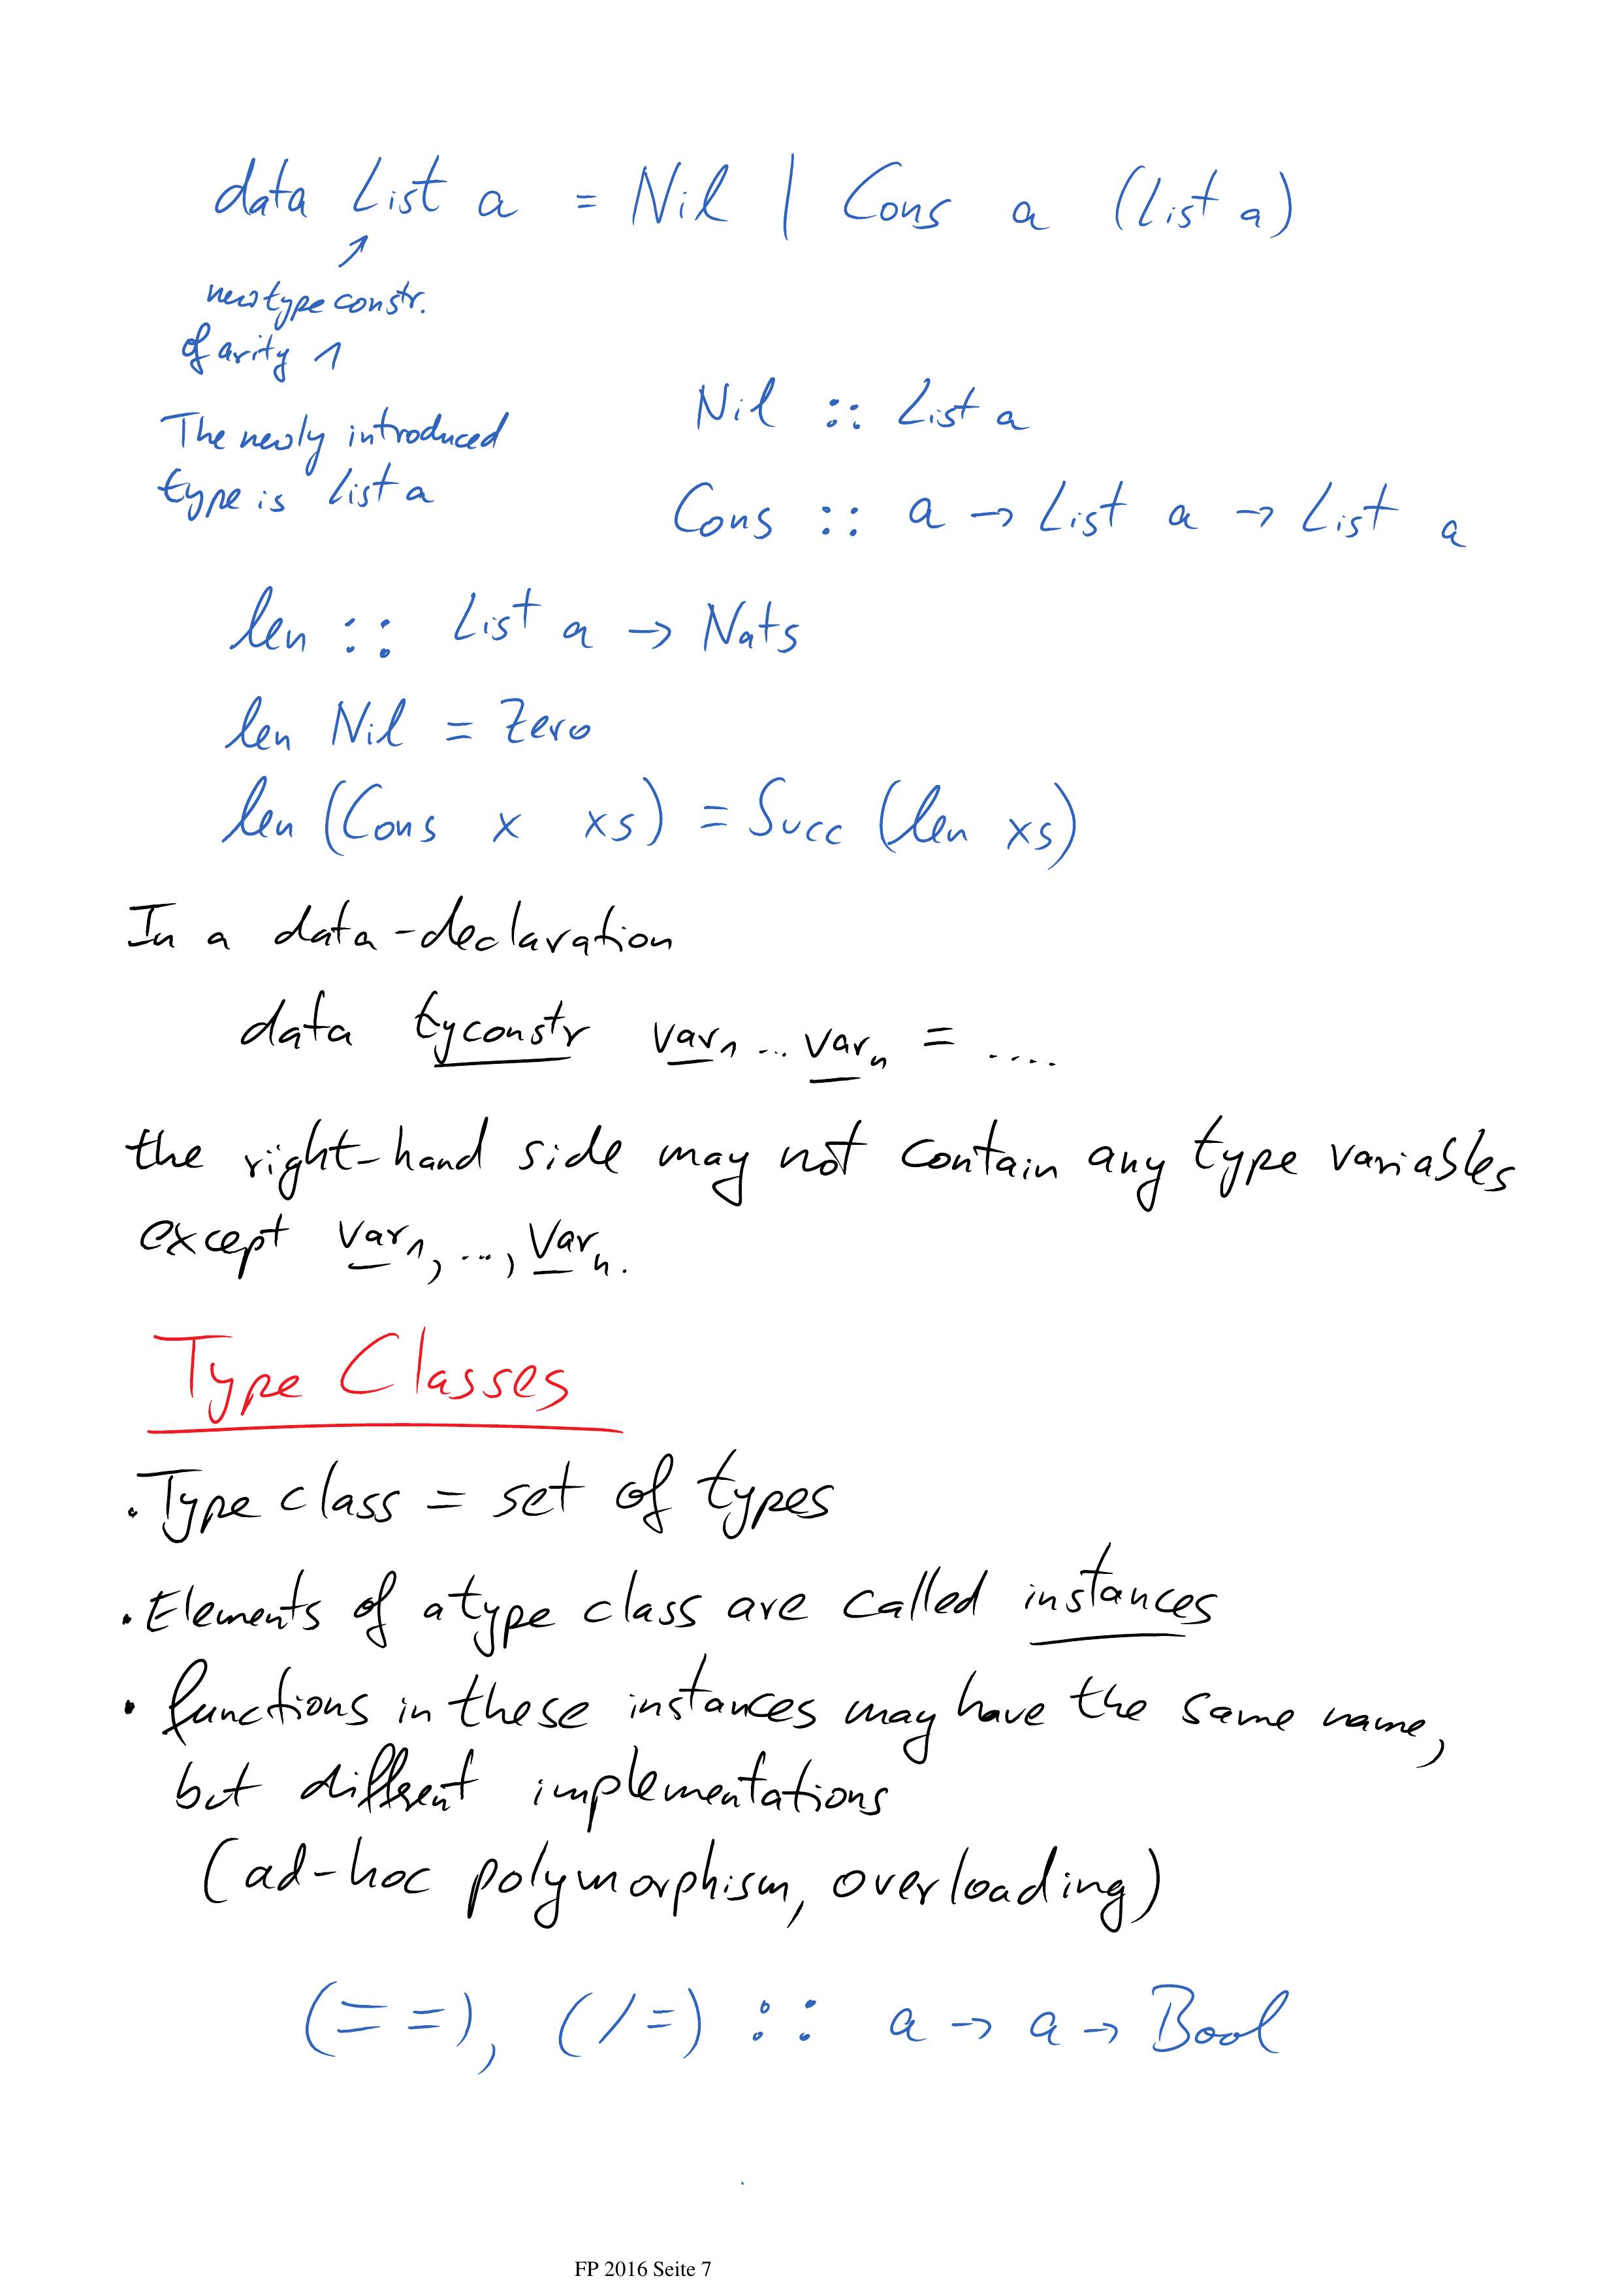 data List a = Nil | Cons a (List a)
↗
new type constr.
of arity 1
The newly introduced
type is List a
Nil :: List a
Cons :: a → List a → List a
len :: List a → Nats
len Nil = Zero
len (Cons x xs) = Succ (len xs)
In a data-declaration
data tyconstr var₁ ... varₙ = ....
the right-hand side may not contain any type variables
except var₁, ..., varₙ.
Type Classes
• Type class = set of types
• Elements of a type class are called instances
• functions in these instances may have the same name,
but different implementations
(ad-hoc polymorphism, overloading)
(==), (/=) :: a → a → Bool
FP 2016 Seite 7